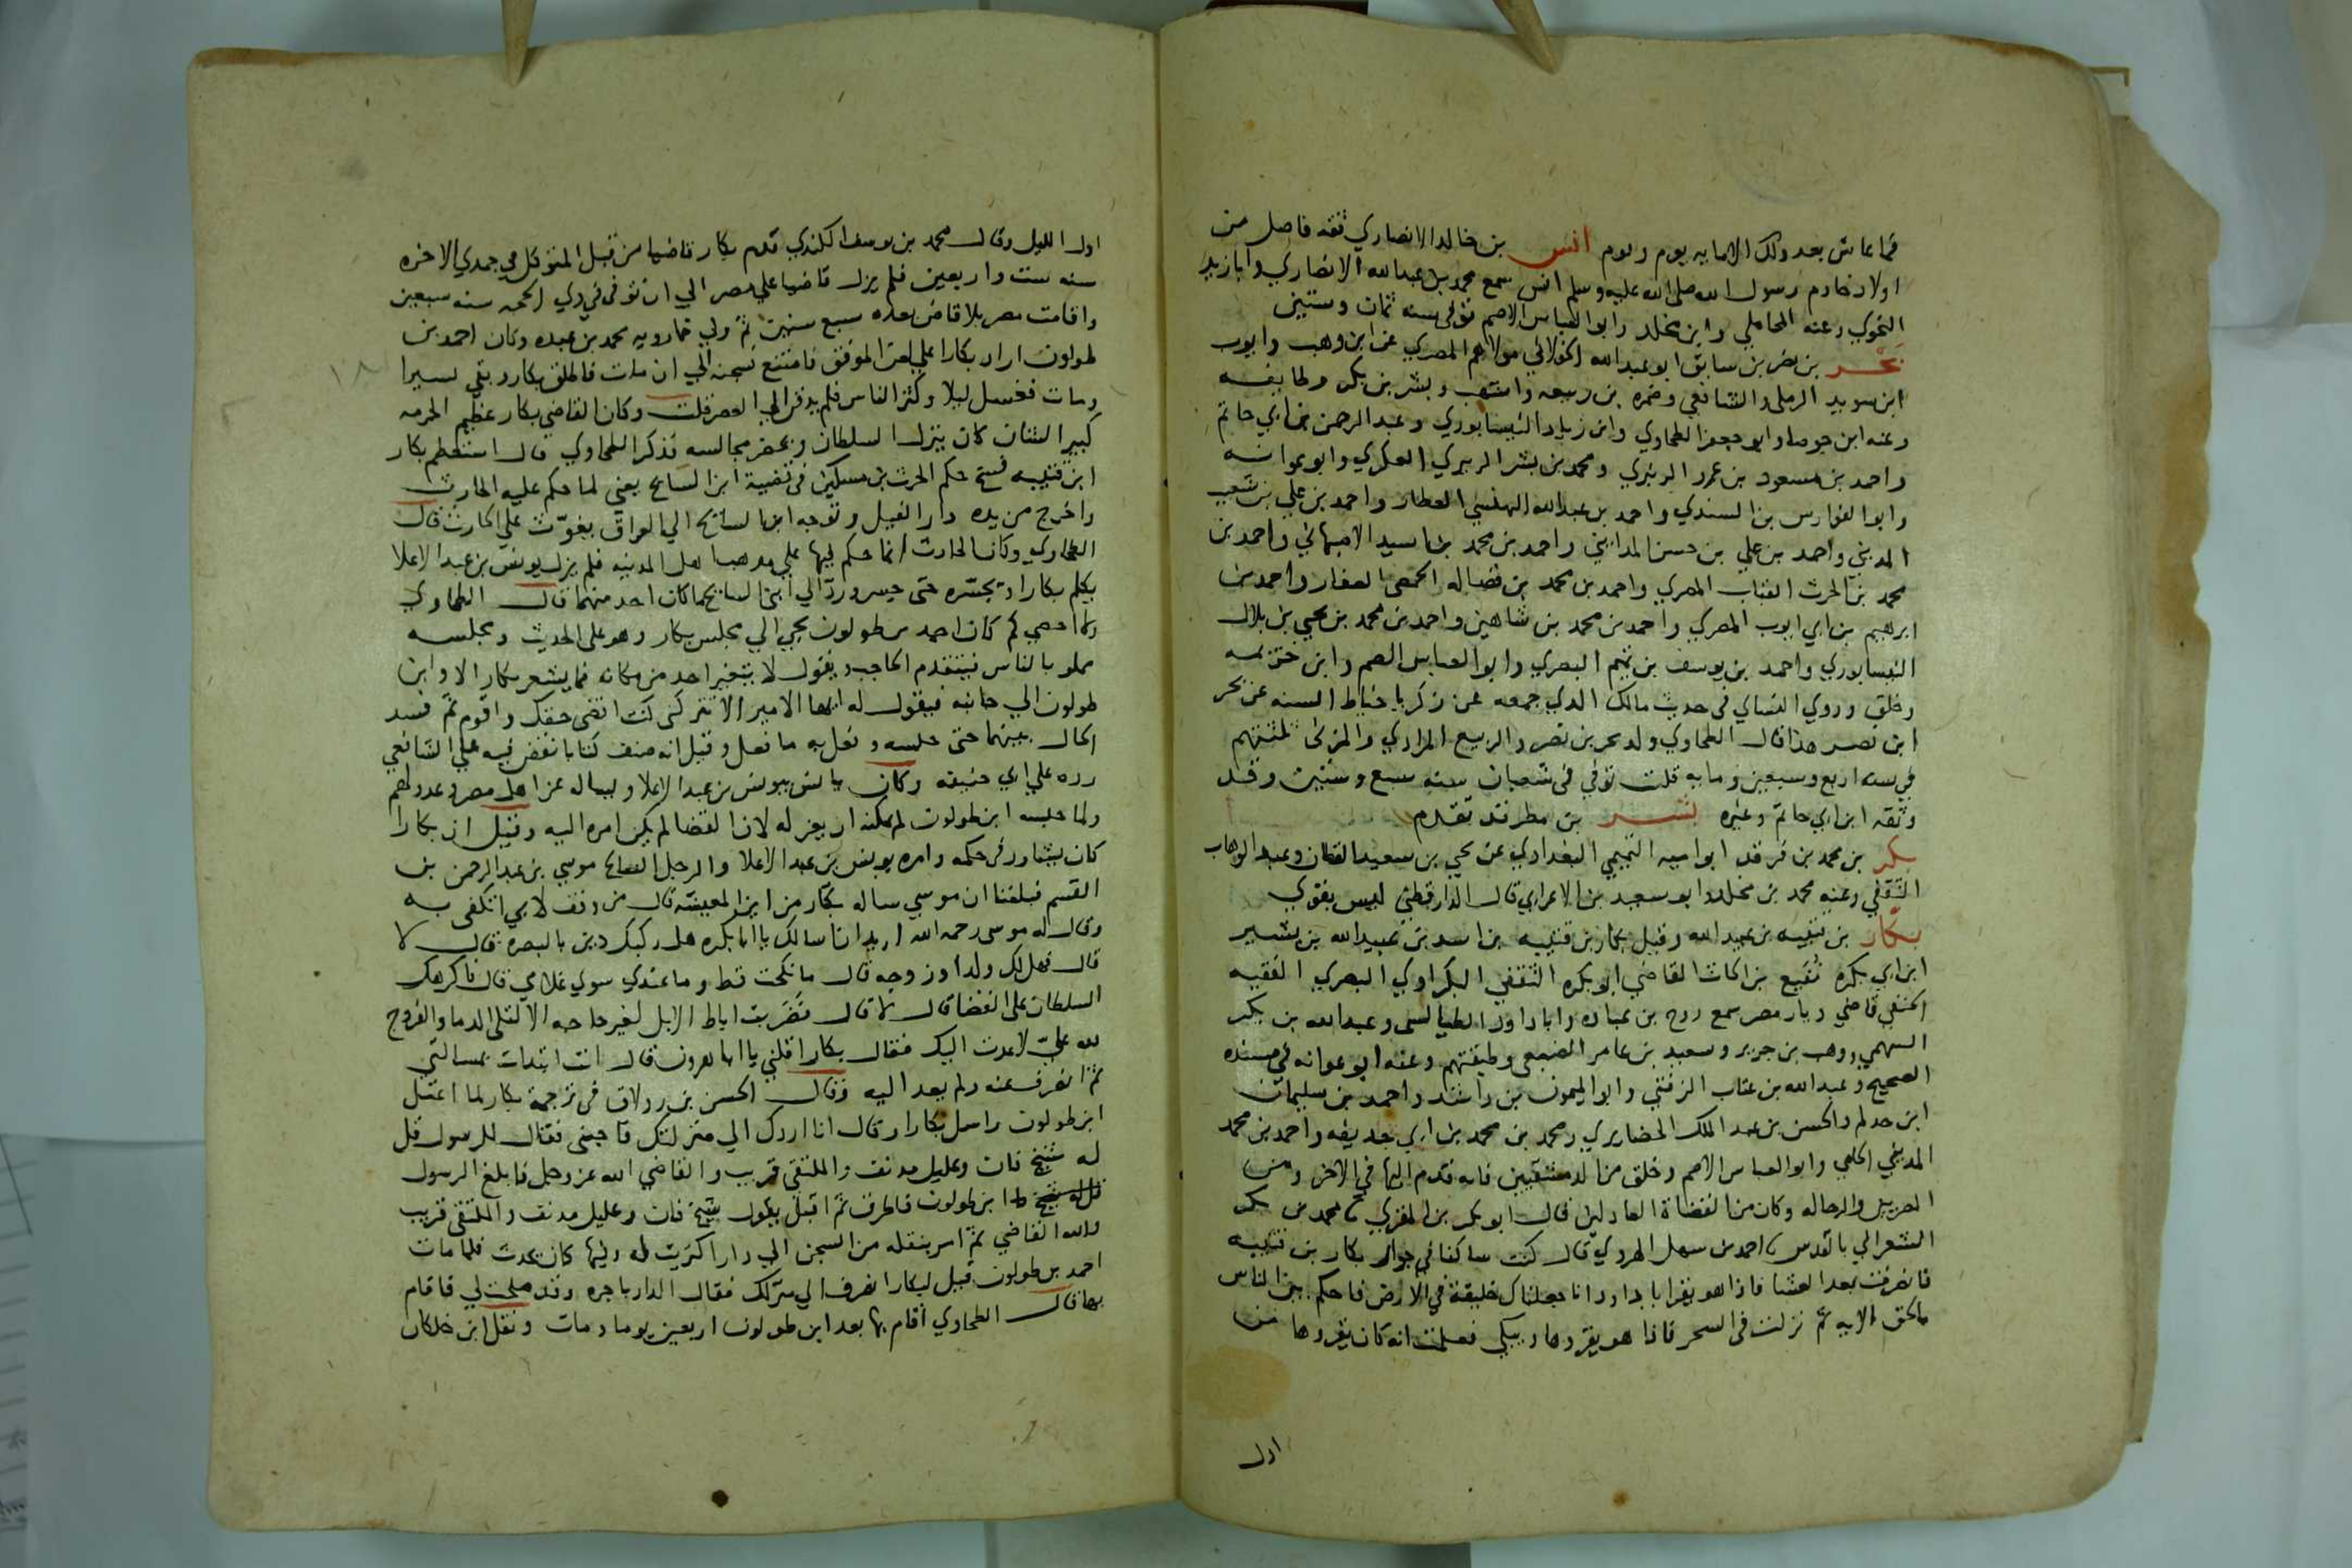 فما عاش بعد ذلك الا مايه يوم ويوم انس بن خالد الانصاري ثقه فاضل من
اولاد خادم رسول الله صلى الله عليه وسلم انس سمع محمد بن عبد الله الانصاري وابا زيد
النحوي وعنه المحاملي وابن مخلد وابو العباس الاصم توفي سنه ثمان وستين
بحر بن نصر بن سابق ابو عبد الله الخولاني مولاهم المصري عن ابن وهب وايوب
ابن سويد الرملي والشافعي وضمره بن ربيعه واشهب وبشر بن بكر وطايفه
وعنه ابن جوصا وابو جعفر الطحاوي وابن زياد النيسابوري وعبد الرحمن بن ابي حاتم
واحمد بن مسعود بن عمرو الزبيري ومحمد بن بشر الزبيري العكري وابو عوانه
وابو الفوارس بن السندي واحمد بن عبد الله البهنسي العطار واحمد بن علي بن شعيب
المديني واحمد بن علي بن حسن المدايني واحمد بن محمد بن اسيد الاصبهاني واحمد بن
محمد بن الحرث القباب المصري واحمد بن محمد بن فضاله الحمصي الصفار واحمد بن
ابرهيم بن ابي ايوب المصري واحمد بن محمد بن شاهين واحمد بن محمد بن يحيى بن بلال
النيسابوري واحمد بن يوسف بن تميم البصري وابو العباس الاصم وابن خزيمه
وخلق وروي النساي في حديث مالك الذي جمعه عن زكريا خياط السنه عن بحر
ابن نصر هذا قال الطحاوي ولد بحر بن نصر والربيع المرادي والمزني ثلثتهم
في سنه اربع وسبعين ومايه قلت توفي في شعبان سنه سبع وستين وقد
وثقه ابن ابي حاتم وغيره بشر بن مطر قد تقدم
بكر بن محمد بن فرقد ابو اميه التميمي البغدادي عن يحيى بن سعيد القطان وعبد الوهاب
الثقفي وعنه محمد بن مخلد وابو سعيد بن الاعرابي قال الدارقطني ليس بقوي
بكار بن قتيبه بن عبيد الله وقيل بكار بن قتيبه بن اسد بن عبيد الله بن بشير
ابن ابي بكره نفيع بن الحارث القاضي ابو بكره الثقفي البكراوي البصري الفقيه
الحنفي قاضي ديار مصر سمع روح بن عباده وابا داود الطيالسي وعبد الله بن بكر
السهمي ووهب بن جرير وسعيد بن عامر الضبعي وطبقتهم وعنه ابو عوانه في مسنده
الصحيح وعبد الله بن عتاب الزفتي وابو الميمون بن راشد واحمد بن سليمان
ابن حذلم والحسن بن عبد الملك الحضايري ومحمد بن محمد بن ابي حذيفه واحمد بن محمد
المديني الحامي وابو العباس الاصم وخلق من الدمشقيين فانه قدم اليها في الاخر ومن
والرحاله وكان من القضاة العادلين قال ابو بكر بن المقري محمد بن بكر
الشعراني بالقدس احمد بن سهل الهروي قال كنت ساكنا في جوار بكار بن قتيبه
فانصرفت بعد العشا فاذا هو يقرا يا داود انا جعلناك خليفة في الارض فاحكم بين الناس
بالحق الايه ثم نزلت في السحر فاذا هو يقروها ويبكي فعلمت انه كان يقروها من
اول
اول الليل وقال محمد بن يوسف الكندي قدم بكار قاضيا من قبل المتوكل في جمدي الاخره
سنه ست واربعين فلم يزل قاضيا علي مصر الي ان توفي في ذي الحجه سنه سبعين
واقامت مصر بلا قاض بعده سبع سنين ثم ولي خمارويه محمد بن عبده وكان احمد بن
طولون اراد بكارا علي لعن الموفق فامتنع فسجنه الي ان مات فاطلق بكار وبقي يسيرا
ومات فغسل ليلا وكثر الناس فلم يدفن الي العصر قلت وكان القاضي بكار عظيم الحرمه
كبير الشان كان ينزل السلطان ويحضر مجالسه فذكر الطحاوي قال استعظم بكار
ابن قتيبه فسخ حكم الحرث بن مسكين في قضية ابن السايح يعني لما حكم عليه الحارث
واخرج من يده دار الفيل وتوجه ابن السايح الي العراق يغوث علي الحارث قال
الطحاوي وكان الحارث انما حكم فيها علي مذهب اهل المدينه فلم يزل يونس بن عبد الاعلا
يكلم بكارا ويجسره حتى جسر ورد الي ابني السايح ما كان احد منهما قال الطحاوي
ولا احصي كم كان احمد بن طولون يجي الي مجلس بكار وهو على الحديث ومجلسه
مملو بالناس فيتقدم الحاجب ويقول لا يتغير احد من مكانه فما يشعر بكار الا وابن
طولون الي جانبه فيقول له ايها الامير الا تتركني كنت اقضي حقك واقوم ثم فسد
الحال بينهما حتى حبسه وفعل به ما فعل وقيل انه صنف كتابا نقض فيه علي الشافعي
رده علي ابي حنيفه وكان يانس بيونس بن عبد الاعلا ويساله عن اهل مصر وعدولهم
ولما حبسه ابن طولون لم يمكنه ان يعزله لان القضا لم يكن امره اليه وقيل ان بكارا
كان يشاور في حكمه وامره يونس بن عبد الاعلا والرجل الصالح موسي بن عبد الرحمن بن
القسم فبلغنا ان موسي ساله بكار من اين المعيشه قال من وقف لابي اتكفى به
وقال له موسى رحمه الله اريد ان اسالك يا ابا بكره هل ركبك دين بالبصره قال لا
قال فهل لك ولد او زوجه قال ما نكحت قط وما عندي سوي غلامي قال فاكرهك
السلطان على القضا قال لا قال فضربت اباط الابل لغير حاجه الا لتلي الدما والفروج
لله علي لا عدت اليك فقال بكار اقلني يا ابا هرون قال انت ابتدات بمسالتي
ثم انصرف عنه ولم يعد اليه وقال الحسن بن زولاق في ترجمة بكار لما اعتل
ابن طولون راسل بكارا وقال انا اردك الي منزلتك فاجبني فقال للرسول قل
له شيخ فان وعليل مدنف والملتقي قريب والقاضي الله عز وجل فابلغ الرسول
ابن طولون فاطرق ثم اقبل يقول شيخ فان وعليل مدنف والملتقى قريب
والله القاضي ثم امر بنقله من السجن الي دار اكتريت له وفيها كان يحدث فلما مات
احمد بن طولون قيل لبكار انصرف الي منزلك فقال الدار باجره وقد صلحت لي فاقام
بها قال الطحاوي اقام بها بعد ابن طولون اربعين يوما ومات ونقل ابن خلكان